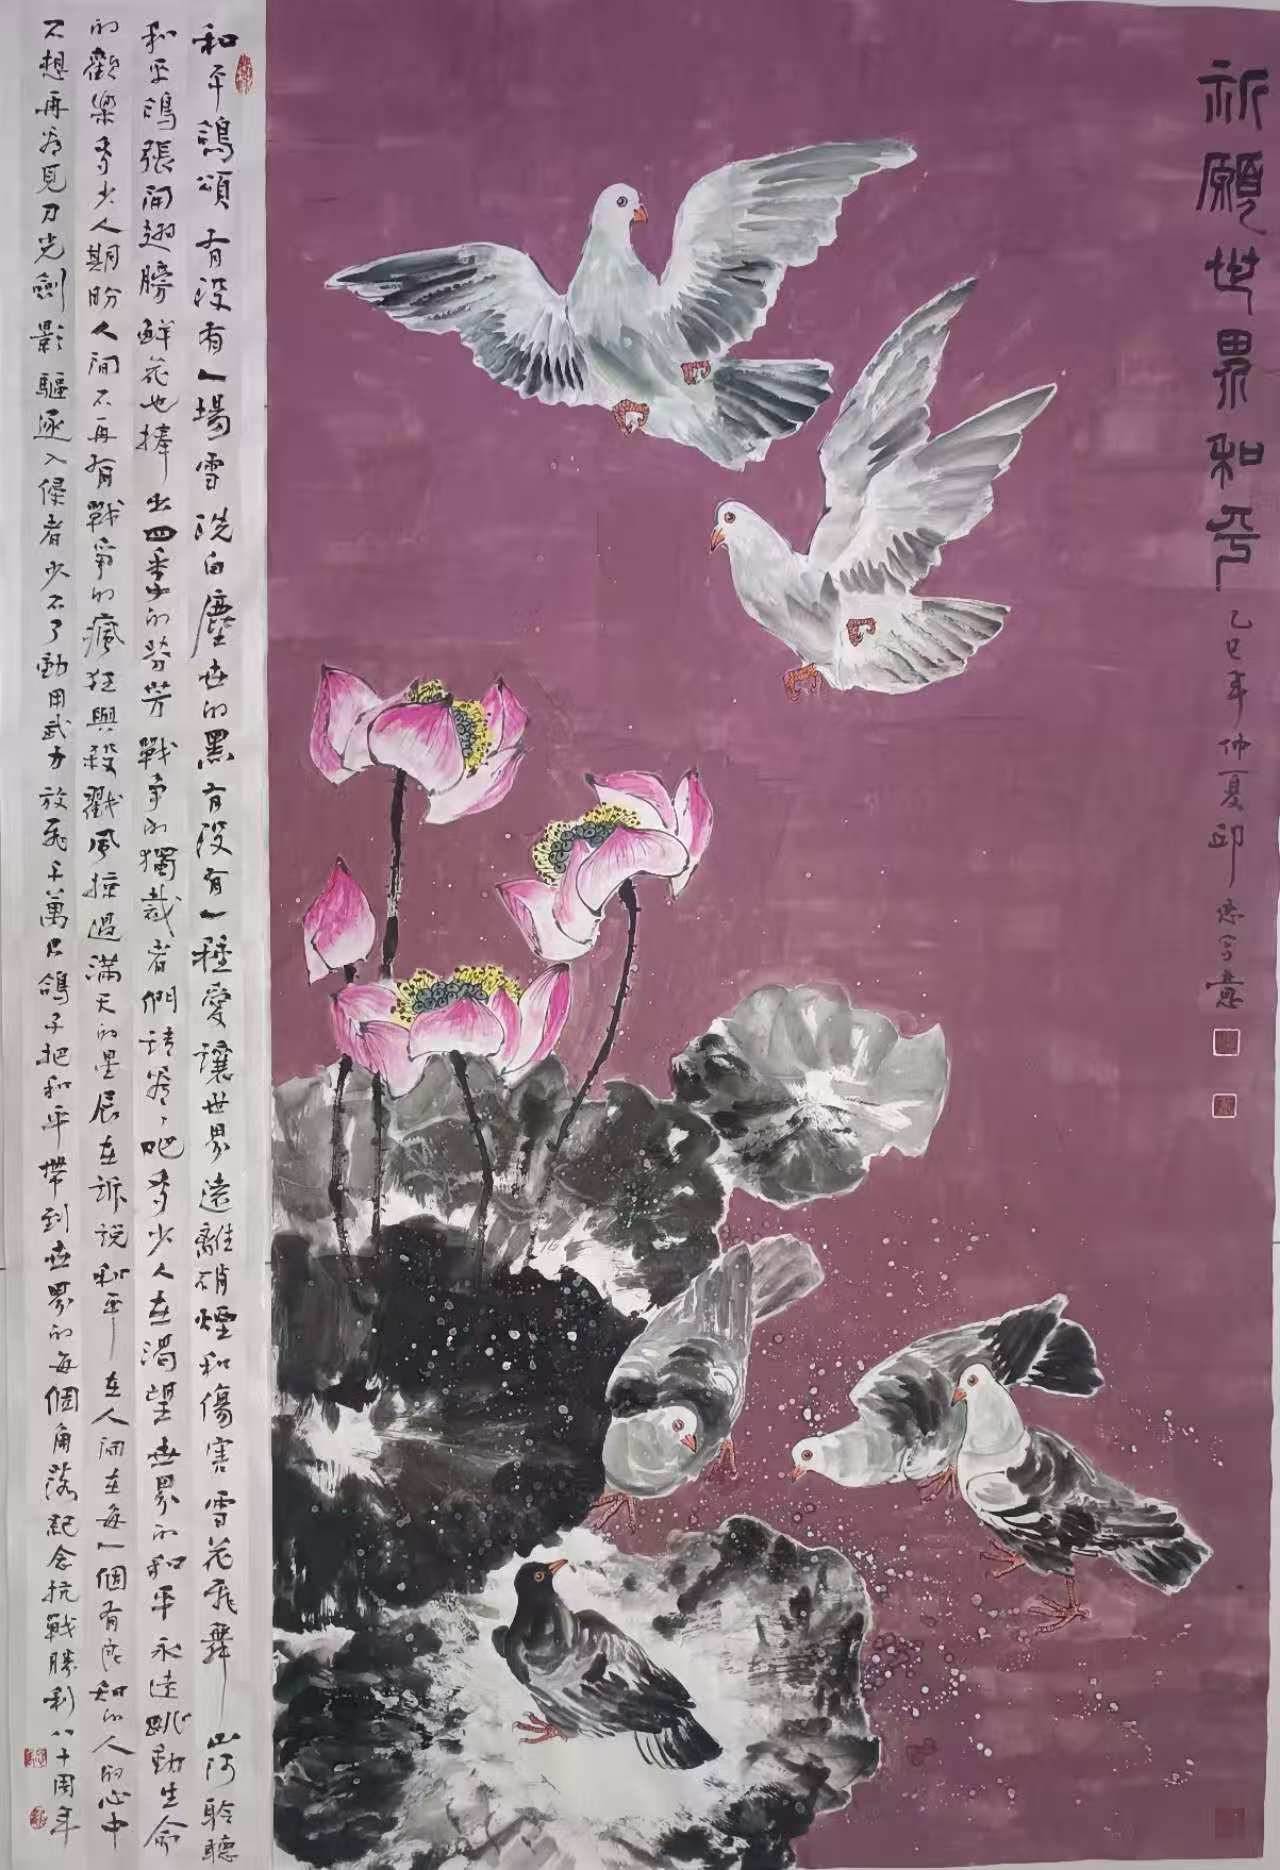 祈願世界和平
乙巳年仲夏邱寫意
和平鴿頌 有沒有一場雪洗白塵世的黑有沒有一種愛讓世界遠離硝煙和傷害 雪花飛舞山河聆聽
和平鴿張開翅膀鮮花也捧出四季的芬芳戰爭的獨裁者們請答答吧多少人在渴望世界的和平永遠跳動生命
的歡樂多少人期盼人间不再有戰爭的瘋狂與殺戮風掠過滿天的星辰在訴說和平 在人间在每一個有良知的人的心中
不想再看見刀光劍影驅逐入侵者少不了動用武力放飛千萬只鴿子把和平帶到世界的每個角落紀念抗戰勝利八十周年